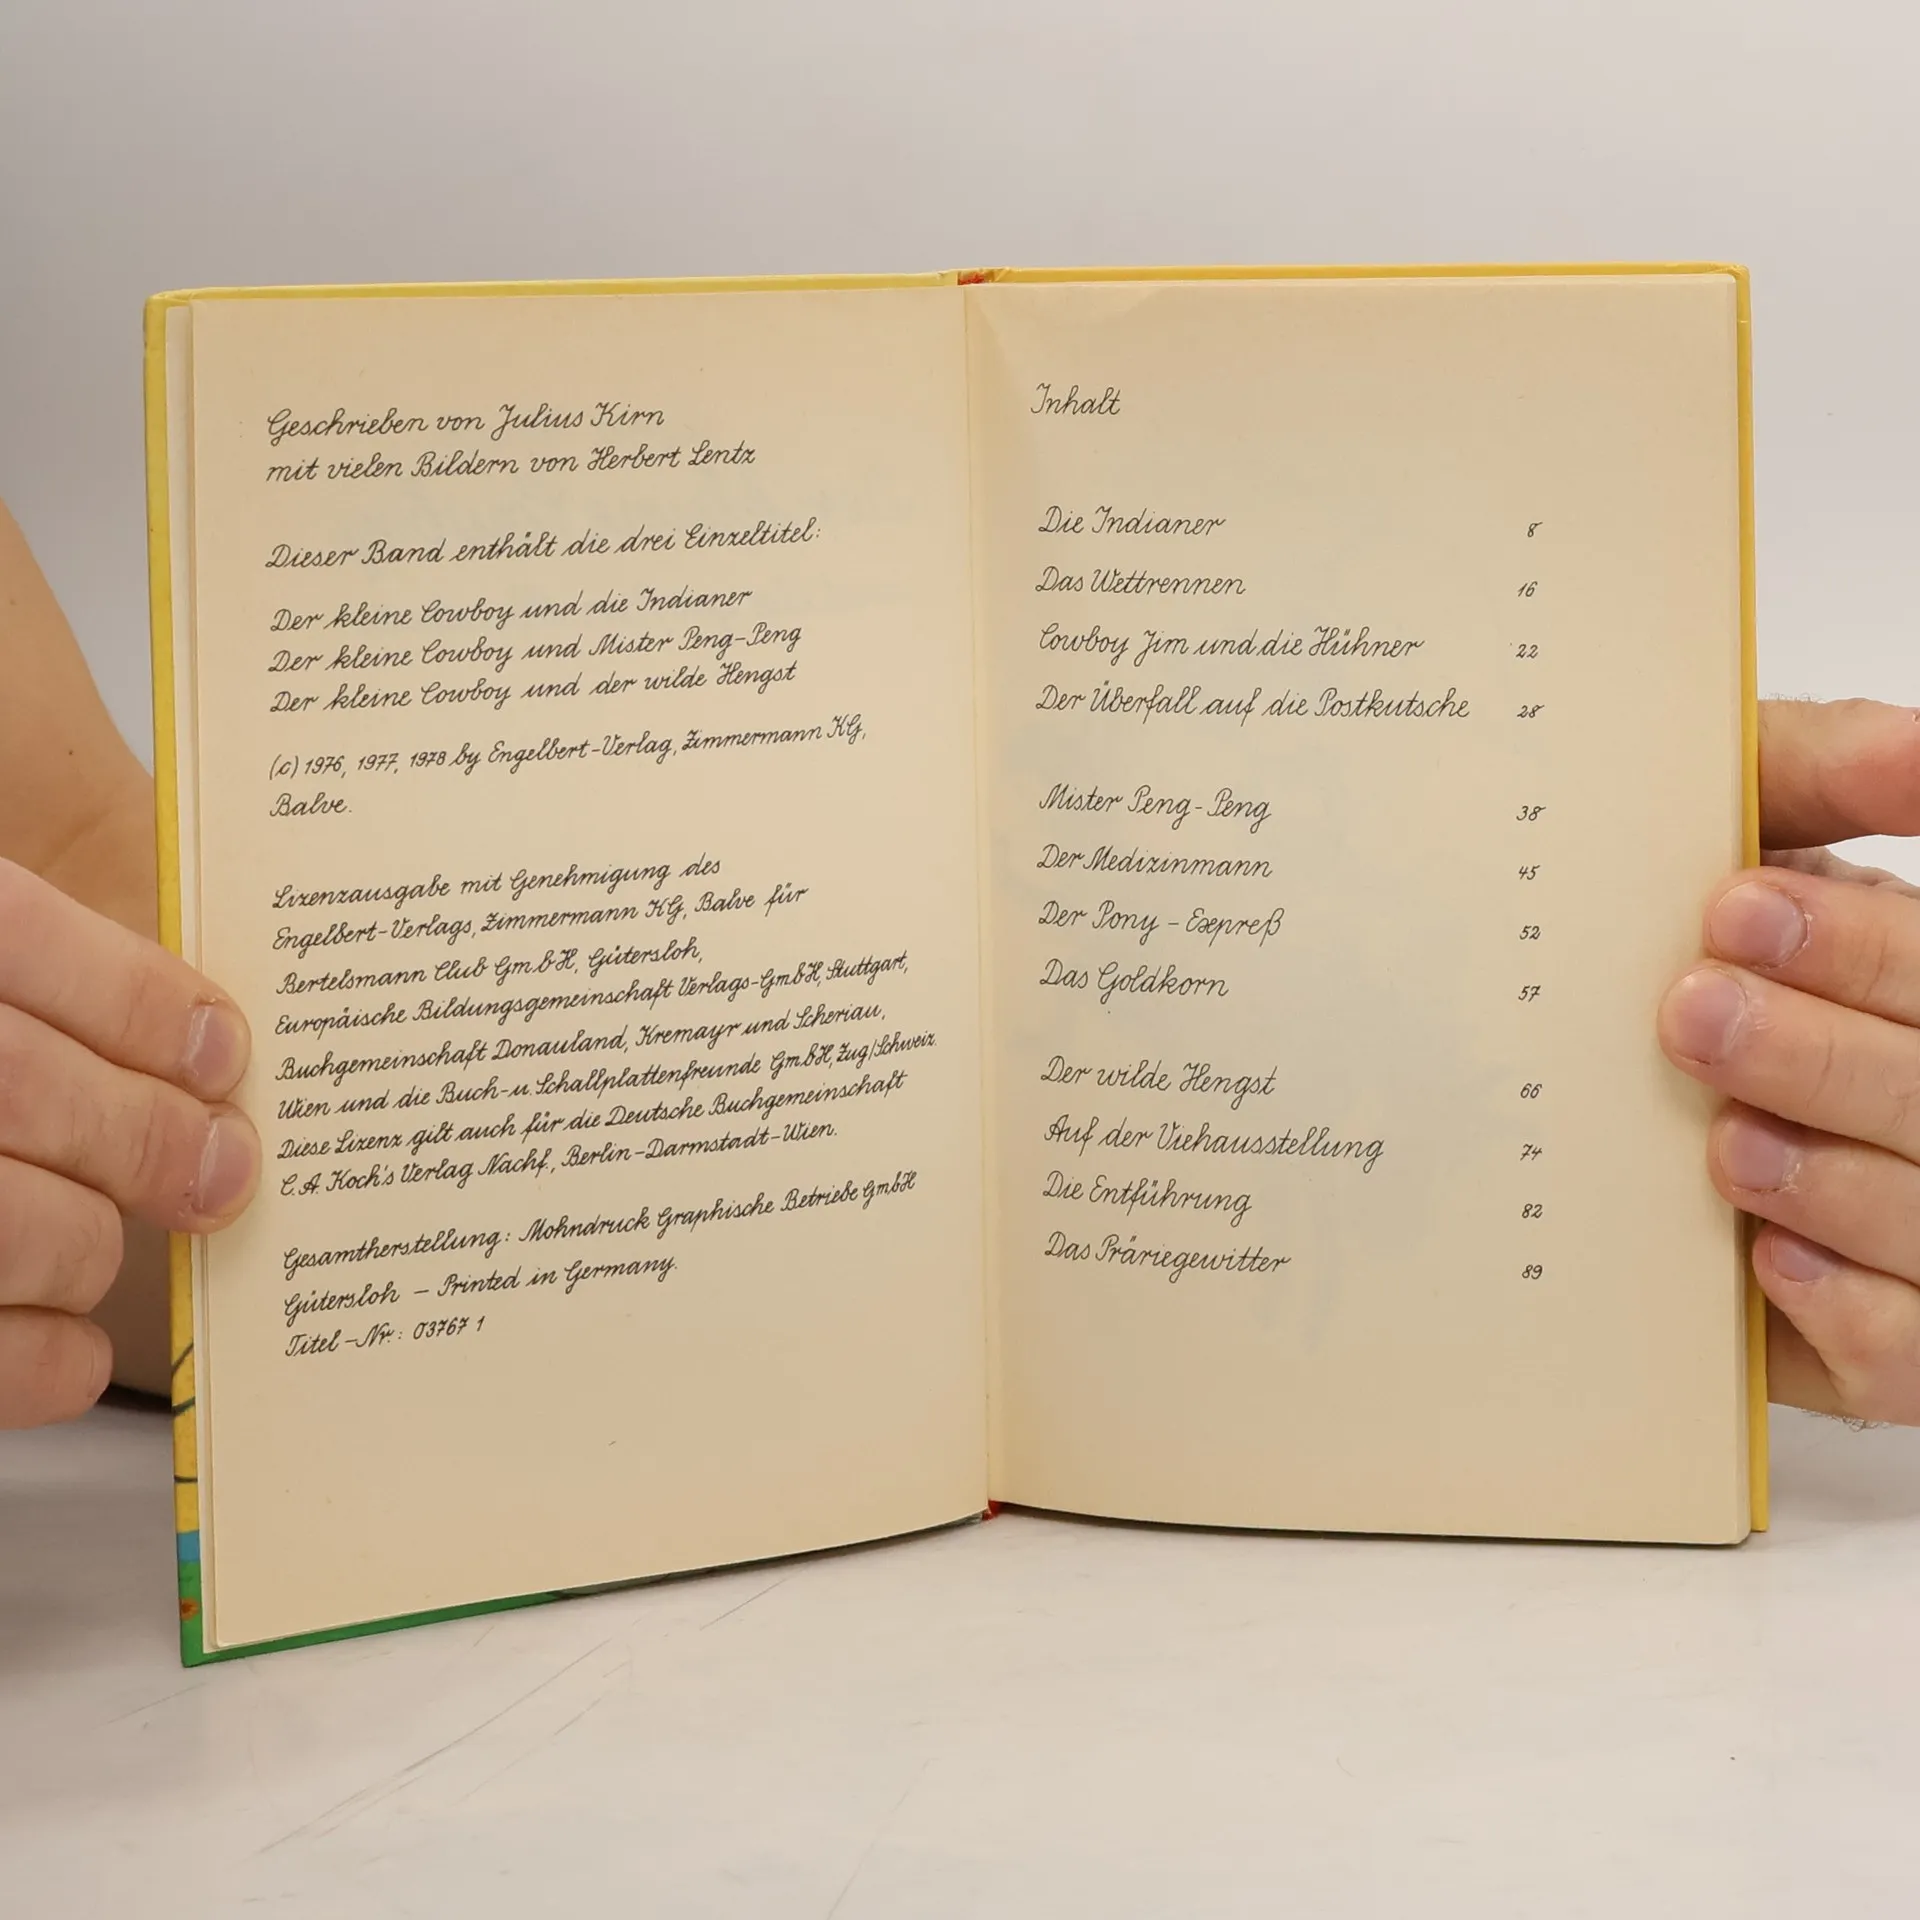 Geschrieben von Julius Kirn
mit vielen Bildern von Herbert Lentz
Dieser Band enthält die drei Einzeltitel:
Der kleine Cowboy und die Indianer
Der kleine Cowboy und Mister Peng-Peng
Der kleine Cowboy und der wilde Hengst
(c) 1976, 1977, 1978 by Engelbert-Verlag, Zimmermann KG,
Balve.
Lizenzausgabe mit Genehmigung des
Engelbert-Verlags, Zimmermann KG, Balve für
Bertelsmann Club GmbH, Gütersloh,
Europäische Bildungsgemeinschaft Verlags-GmbH, Stuttgart,
Buchgemeinschaft Donauland, Kremayr und Scheriau,
Wien und die Buch-u. Schallplattenfreunde GmbH, Zug/Schweiz.
Diese Lizenz gilt auch für die Deutsche Buchgemeinschaft
C.A. Koch's Verlag Nachf., Berlin-Darmstadt-Wien.
Gesamtherstellung: Mohndruck Graphische Betriebe GmbH
Gütersloh – Printed in Germany.
Titel-Nr.: 03767 1
Inhalt
Die Indianer 8
Das Wettrennen 16
Cowboy Jim und die Hühner 22
Der Überfall auf die Postkutsche 28
Mister Peng-Peng 38
Der Medizinmann 45
Der Pony-Expreß 52
Das Goldkorn 57
Der wilde Hengst 66
Auf der Viehausstellung 74
Die Entführung 82
Das Präriegewitter 89